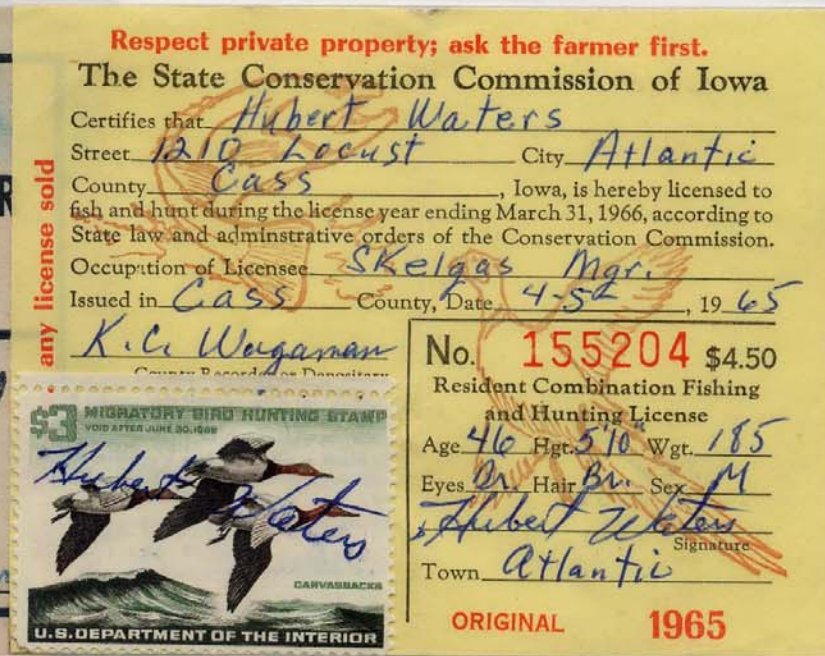 Respect private property; ask the farmer first.
The State Conservation Commission of Iowa
Certifies that Hubert Waters
Street 1210 Locust City Atlantic
County Cass, Iowa, is hereby licensed to
fish and hunt during the license year ending March 31, 1966, according to
State law and adminstrative orders of the Conservation Commission.
Occupation of Licensee Skelgas Mgr.
Issued in Cass County, Date 4-5, 1965
K.C. Wagaman
County Recorder or Depositary
any license sold
No. 155204 $4.50
Resident Combination Fishing
and Hunting License
Age 46 Hgt. 5'10" Wgt. 185
Eyes Br. Hair Br. Sex M
Hubert Waters
Signature
Town Atlantic
ORIGINAL 1965
$3 MIGRATORY BIRD HUNTING STAMP
VOID AFTER JUNE 30, 1966
Hubert Waters
CANVASBACKS
U.S. DEPARTMENT OF THE INTERIOR